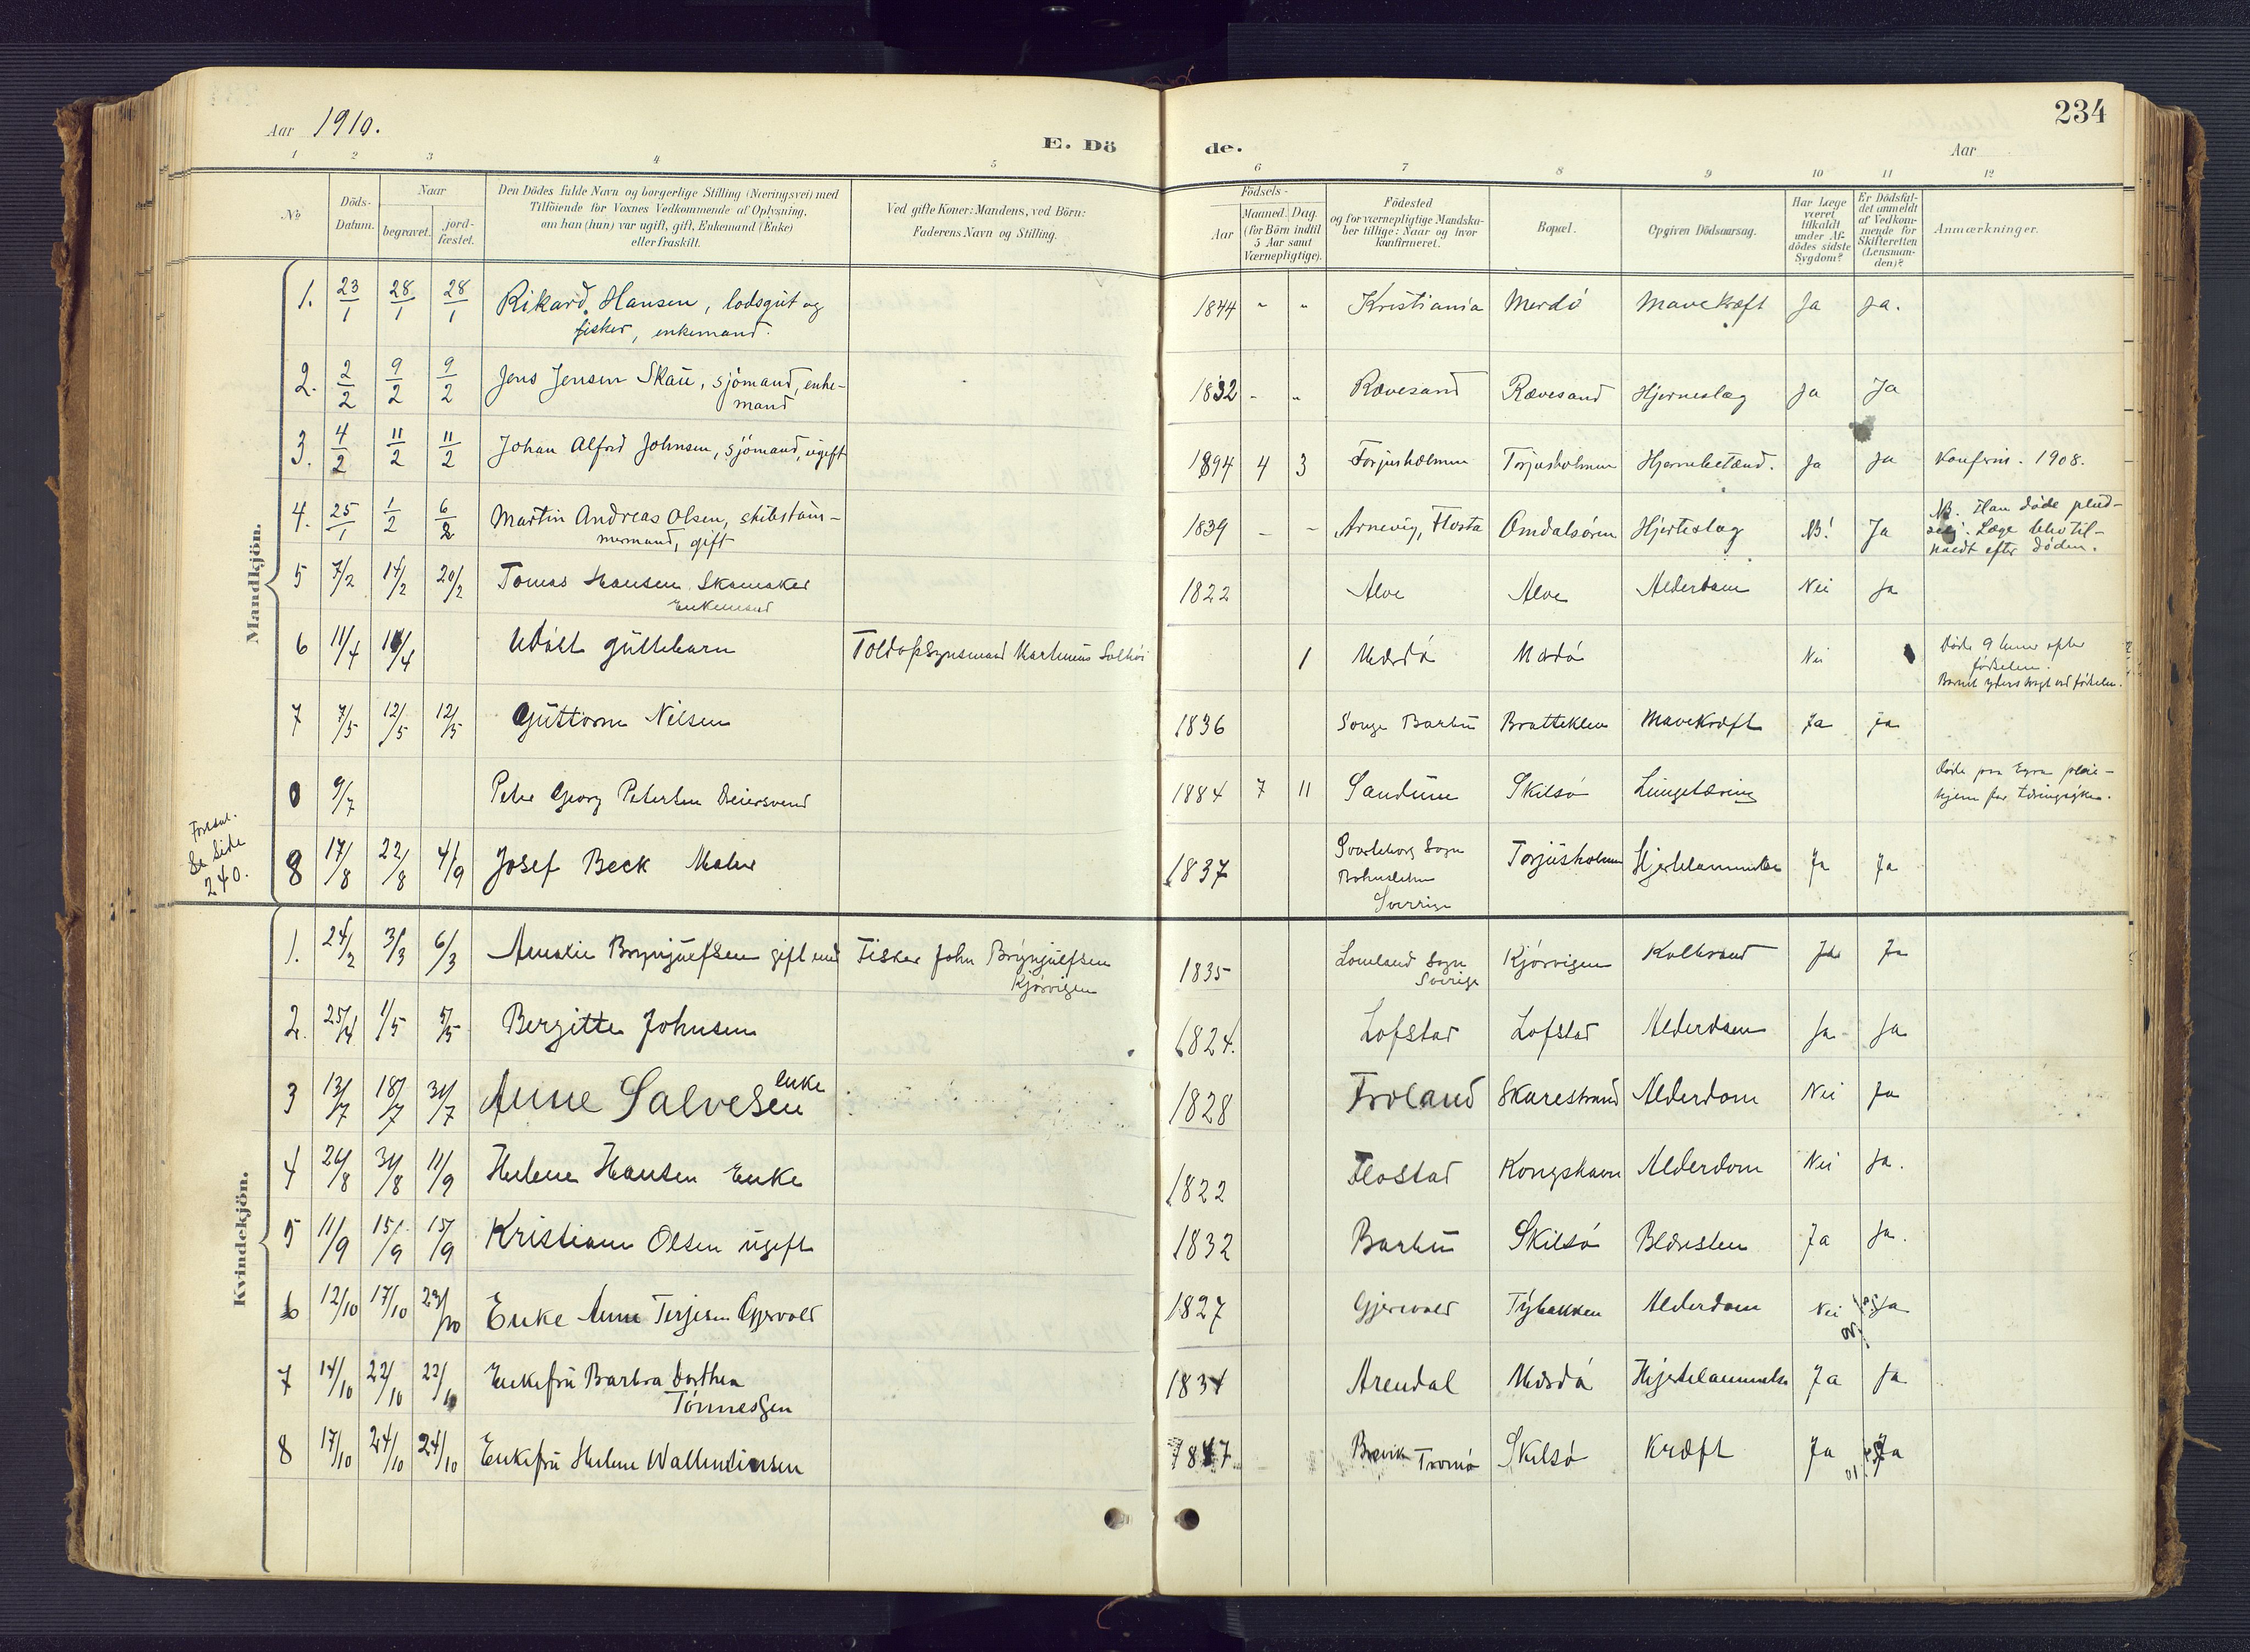 234
Aar 1910.
E. Dö de.
Aar
1 2 3 4 5 6 7 8 9 10 11 12
No
Döds-Datum.
Naar
begravet.
jord-fæstet.
Den Dödes fulde Navn og borgerlige Stilling (Næringsvei) med
Tilföiende for Voxnes Vedkommende af Oplysning,
om han (hun) var ugift, gift, Enkemand (Enke)
eller fraskilt.
Ved gifte Koner: Mandens, ved Börn:
Faderens Navn og Stilling.
Födsels-
Aar
Maaned. Dag.
(for Börn indtil
5 Aar samt
Værnepligtige).
Födested
og for værnepligtige Mandska-
ber tillige: Naar og hvor
konfirmeret.
Bopæl.
Opgiven Dödsaarsag.
Har Læge
været
tilkaldt
under Af-
dödes sidste
Sygdom?
Er Dödsfal-
det anmeldt
af Vedkom-
mende for
Skifteretten
(Lensman-
den)?
Anmærkninger.
Mandkjön.
1. 23/1 28/1 28/1 Rikard Hansen, lodsgut og 1844 " " Kristiania Merdö Mavekræft Ja Ja.
fisker, enkemand.
2. 2/2 9/2 9/2 Jens Jensen Skau, sjömand, enke- 1832 " " Rævesand Rævesand Hjerneslag Ja Ja
mand
3. 4/2 11/2 11/2 Johan Alfred Johnsen, sjömand, ugift 1894 4 3 Torjusholmen Torjusholmen Hjernebetænd. Ja Ja Konfirm. 1908.
4. 25/1 1/2 6/2 Martin Andreas Olsen, skibstöm- 1839 - - Arnevig, Flosta Omdalsören Hjerteslag NB! Ja NB. Han döde plud-
mermand, gift
selig. Læge blev til-
kaldt efter döden.
5 7/2 14/2 20/2 Tomas Hansen Skomaker 1822 Alve Alve Alderdom Nei Ja
Enkemand
6 11/4 14/4 Udöbt guttebarn Toldopsynsmand Martinius Solhöi 1 Merdö Merdö Nei Döde 9 timer efter
födselen.
Barnet yderst svagt ved födselen.
7 7/5 12/5 12/5 Guttorm Nilsen 1836 Songe Barbu Bratteklev Mavekræft Ja Ja
0 9/7 Peter Georg Petersen Beiersvend 1884 7 11 Sandum Skilsö Lungetæring Döde paa pleie-
hjem for tæringssyke.
Fortsat.
Se Side
240.
8 17/8 22/8 4/9 Josef Beck Maler 1837 Svarteborg Sogn Torjusholmen Hjertelammelse Ja Ja
Bohuslehn
Sverrige
Kvindekjön.
1. 24/2 3/3 6/3 Amalie Brynjulfsen gift med Fisker John Brynjulfsen 1835 Lomeland Sogn Kjörvigen Koldbrand Ja Ja
Kjörvigen
Sverige
2. 25/4 1/5 5/5 Bergitte Johnsen 1824. Lofstad Lofstad Alderdom Ja Ja
3 13/7 18/7 31/7 Anne Salvesen enke 1828 Froland Skarestrand Alderdom Nei Ja
4 26/8 31/8 11/9 Helene Hansen Enke 1822 Flostad Kongshavn Alderdom Nei Ja.
5 11/9 15/9 15/9 Kristiane Olsen ugift 1832 Barbu Skilsö Blæresten Ja Ja.
6 12/10 17/10 23/10 Enke Anne Terjesen Gjervold 1827 Gjervold Tybakken Alderdom Nei Ja
7 14/10 22/10 22/10 Enkefru Barbra Dorthea 1834 Arendal Merdö Hjertelammelse Ja Ja
Tönnessen
8 17/10 24/10 24/10 Enkefru Helene Wallentinsen 1847 Brevik Tromö Skilsö Kræft Ja Ja